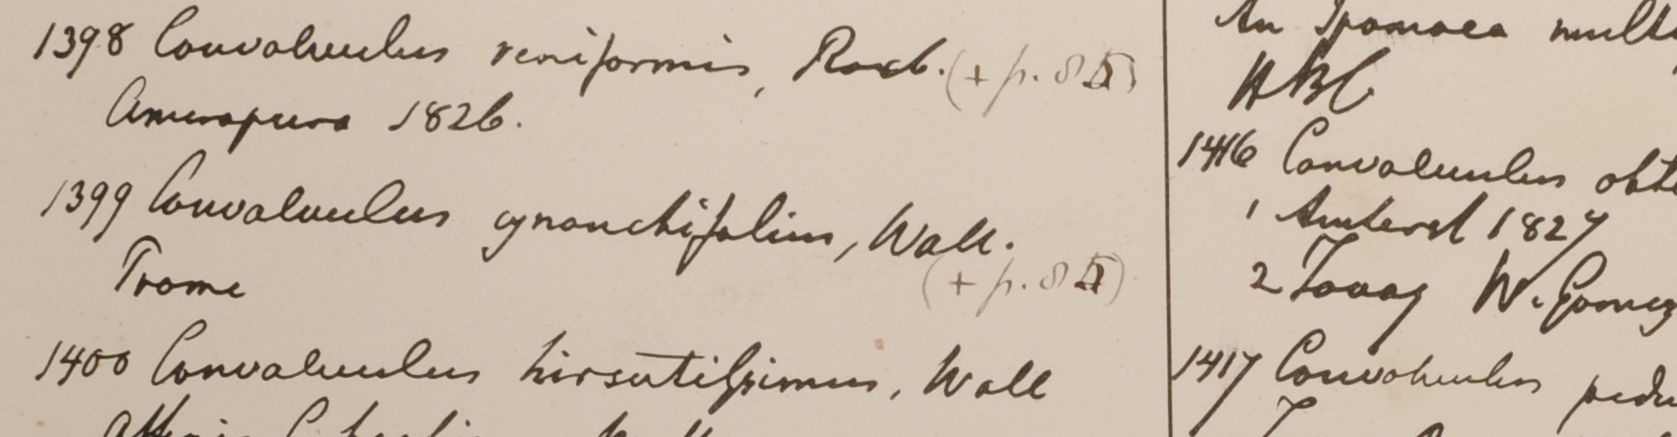 1398 Convolvulus reniformis, Roxb. (+ p. 8
Amerapura 1826.
1399 Convolvulus cynanchifolius, Wall.
(+ p. 8
Prome
1400 Convolvulus hirsutissimus, Wall
Affinis C.
An Ipomaea
HBC
1416 Convolvulus
1 Amherst 1827
2 Tavoy W. Gomez
1417 Convolvulus